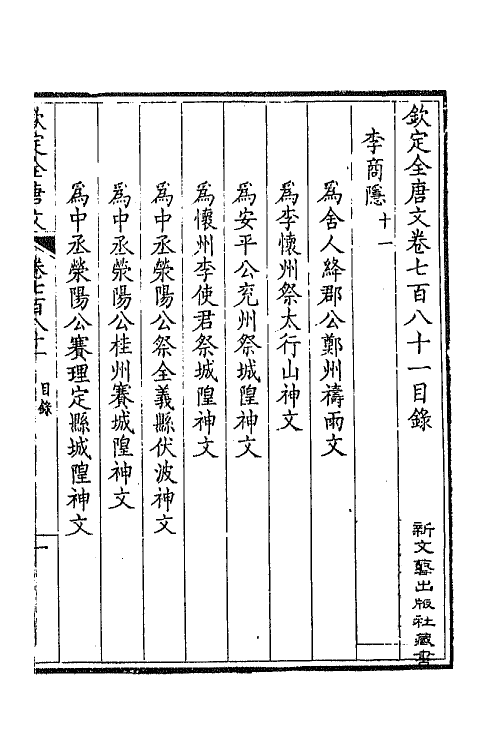 欽定全唐文卷七百八十一目錄
新文藝出版社藏書
李商隱 十一
爲舍人絳郡公鄭州禱雨文
爲李懷州祭太行山神文
爲安平公兗州祭城隍神文
爲懷州李使君祭城隍神文
爲中丞滎陽公祭全義縣伏波神文
爲中丞滎陽公桂州賽城隍神文
爲中丞滎陽公賽理定縣城隍神文
欽定全唐文 卷七百八十一 目錄 一